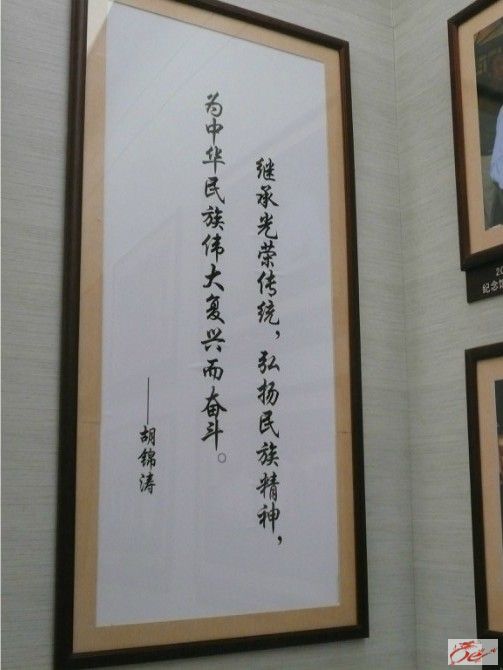 继承光荣传统，弘扬民族精神，
为中华民族伟大复兴而奋斗。
——胡锦涛
20
纪念馆